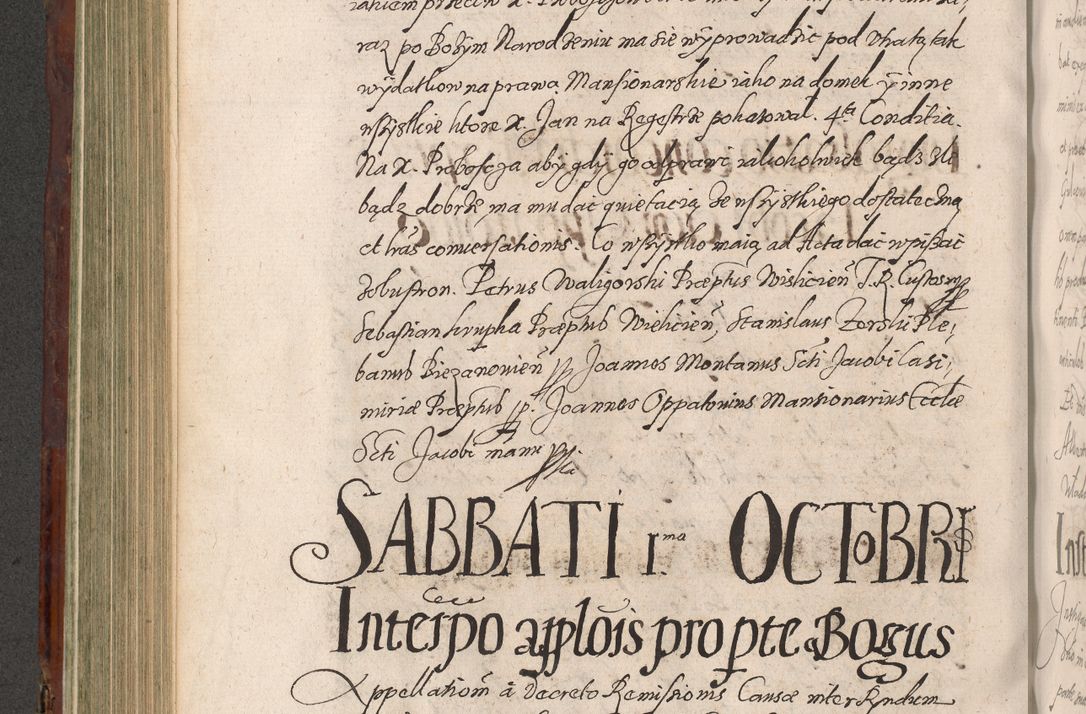 raz po Bożym Narodzeniu ma sie wyprowadzić pod utratą tak
wydatkow na prawą Mansionarskie iako na domek y inne
wszystkie ktore X. Jan na Regestrze pokazował. 4ta Conditia.
Na X. Proboszcza aby gdy go odprawi zakolwiek bądz źle
bądz dobrze ma mu dać quietacią ze wszystkiego dostateczną
et lrãs conversationis. Co wszystko maią ad Acta dać wpisać
Petrus Waligorski Præptus Wislicien̄ J. R. Custos mp
Sebastian Krupka Præptus Wielicien̄, Stanislaus Zorski Ple,
banus Biezanowien̄ pp Joannes Montanus Scti Jacobi Casi,
miriæ Præptus pp. Joannes Oppatovius Mansionarius Eccłæ
Scti Jacobi manu ppia
SABBATI 1.ma OCTOBRIS
Interp̃o applõis pro pte Bogus
Appellationem̃ à Decreto Remissionis Causæ inter Rndum